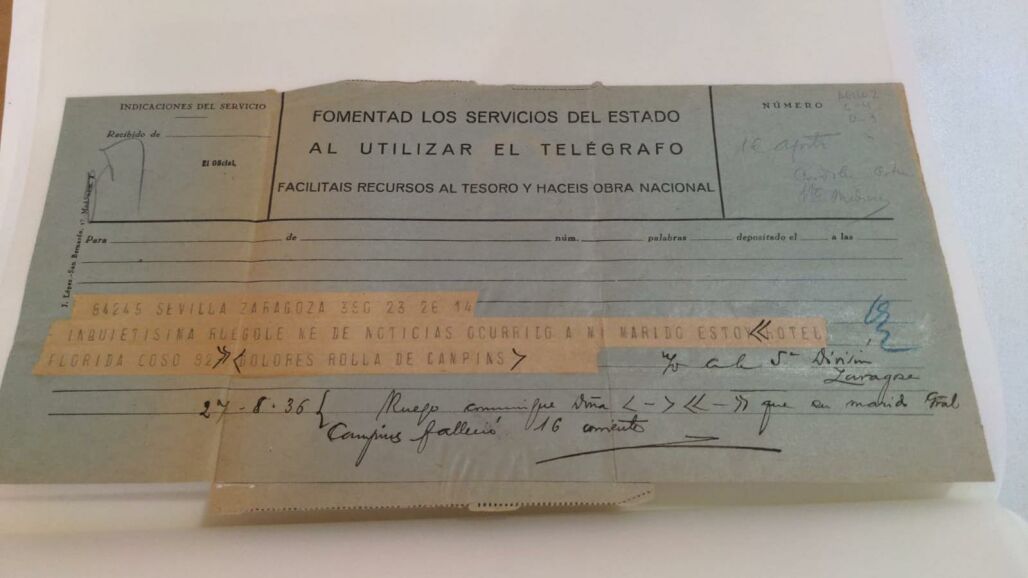 INDICACIONES DEL SERVICIO
Recibido de
El Oficial,
J. López.-San Bernardo, 17
FOMENTAD LOS SERVICIOS DEL ESTADO
AL UTILIZAR EL TELÉGRAFO
FACILITAIS RECURSOS AL TESORO Y HACEIS OBRA NACIONAL
NÚMERO
16 agosto
Para de núm. palabras depositado el a las
64245 SEVILLA ZARAGOZA 35G 23 26 14
INQUIETISIMA RUEGOLE ME DE NOTICIAS OCURRIDO A MI MARIDO ESTOY << HOTEL
FLORIDA COSO 92 >> < DOLORES ROLLA DE CANPINS >
5ª División
Zaragoza
27-8-36 { Ruego comunique Dña < - > << - >> que su marido Gral
Campins falleció 16 corriente